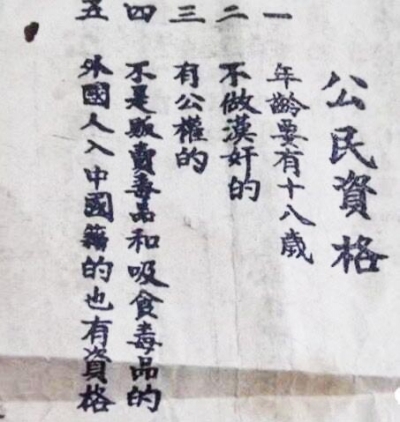 公民資格
一 年齡要有十八歲
二 不做漢奸的
三 有公權的
四 不是販賣毒品和吸食毒品的
五 外國人入中國籍的也有資格